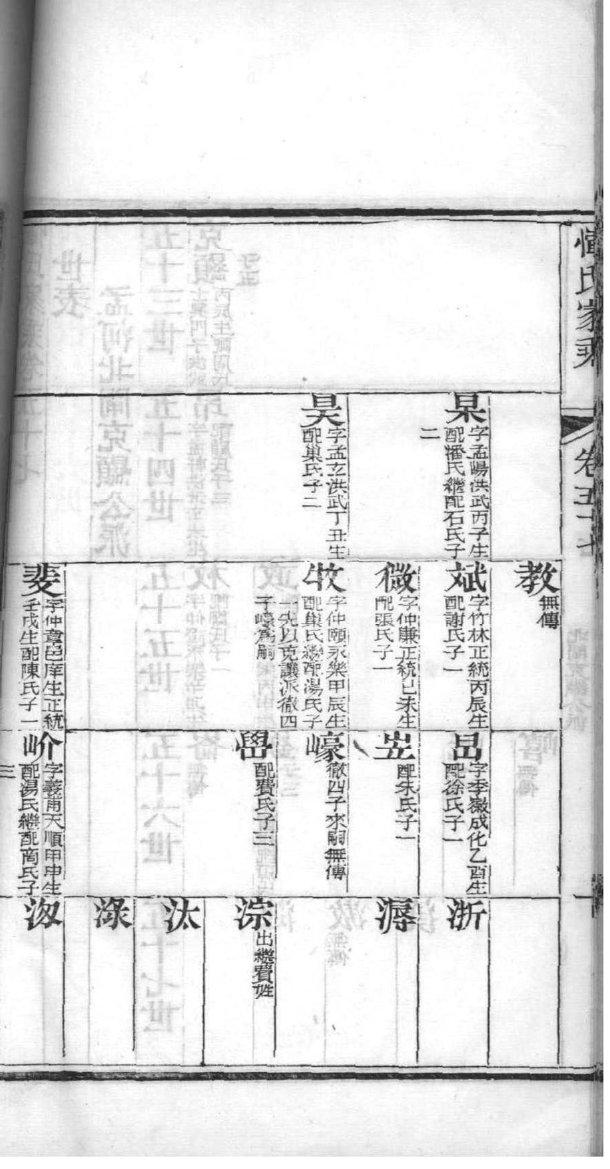 惲氏家乘
卷五十七
杲
字孟暘洪武丙子生
配潘氏繼配石氏子
二
昊
字孟立洪武丁丑生
配巢氏子二
教
無傳
斌
字竹林正統丙辰生
配謝氏子一
微
字仲賡正統己未生
配張氏子一
牧
字仲頤永樂甲辰生
配巢氏繼配湯氏子
一先以克讓派徹四
子㠙爲嗣
斐
字仲章邑庠生正統
壬戌生配陳氏子一
字季嶽成化乙酉生
配徐氏子一
配朱氏子一
㠙
徹四子來嗣無傳
嶨
配費氏子三
岕
字羲甫天順甲申生
配湯氏繼配商氏子
三
浙
漘
淙
出繼費姓
汰
淥